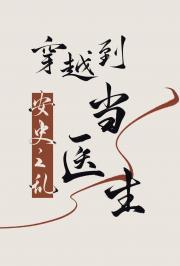 穿越到
安史之乱
当医生